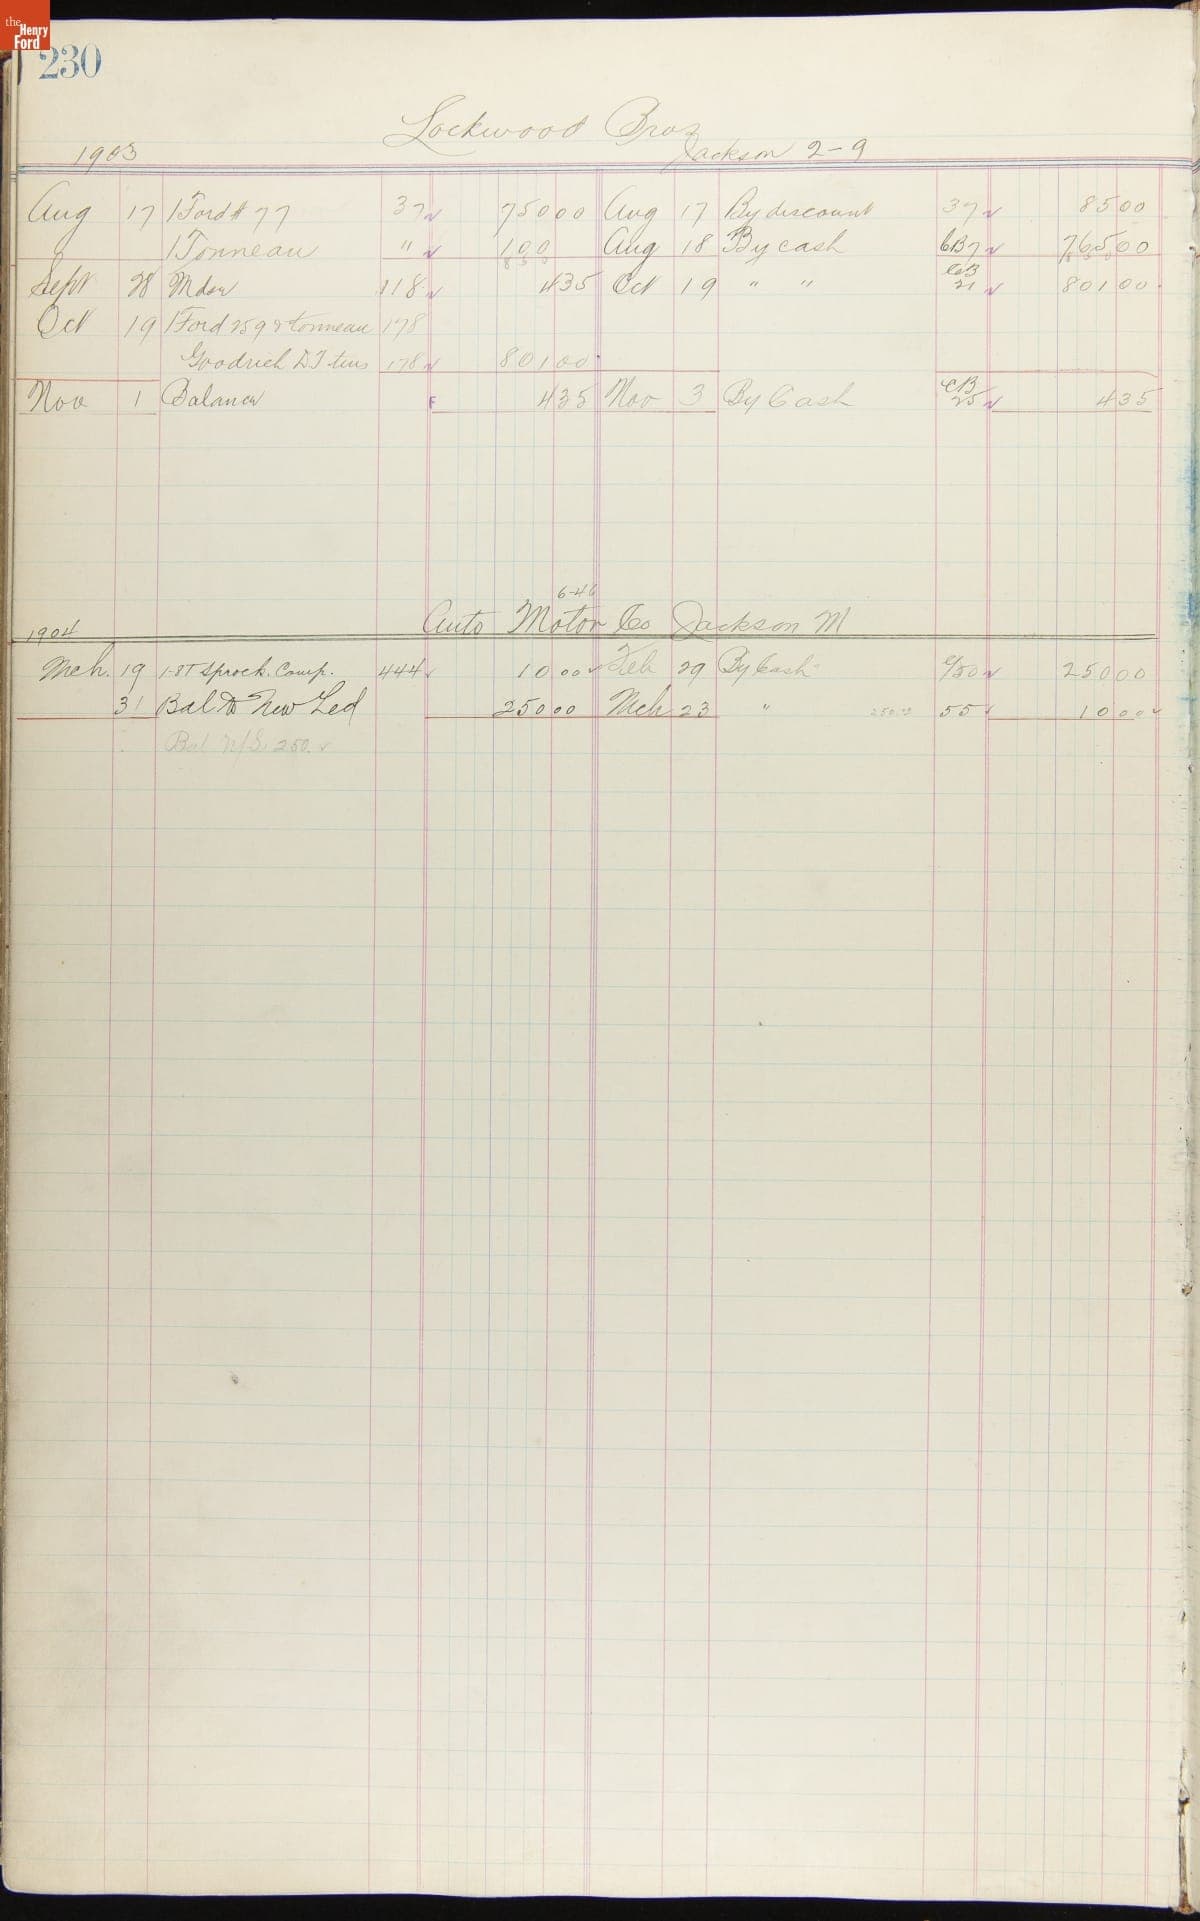 the Henry Ford
230
Lockwood Bros
1903 Jackson 2-9
Aug 17 1 Ford # 77 37 750 00 Aug 17 By discount 37 85 00
1 Tonneau " 100 Aug 18 By cash CB 7 765 00
850 850
Sept 28 Mdse 118 4 35 Oct 19 " " CB 21 801 00
Oct 19 1 Ford 259 & tonneau 178
Goodrich D T tires 178 801 00
Nov 1 Balance F 4 35 Nov 3 By Cash CB 25 4 35
6-46
1904 Auto Motor Co Jackson M
Mch. 19 1-8T Sprock. Comp. 444 10 00 Feb 29 By Cash C/50 250 00
31 Bal to New Led 250 00 Mch 23 " 250.00 55 10 00
Bal N/L 250.